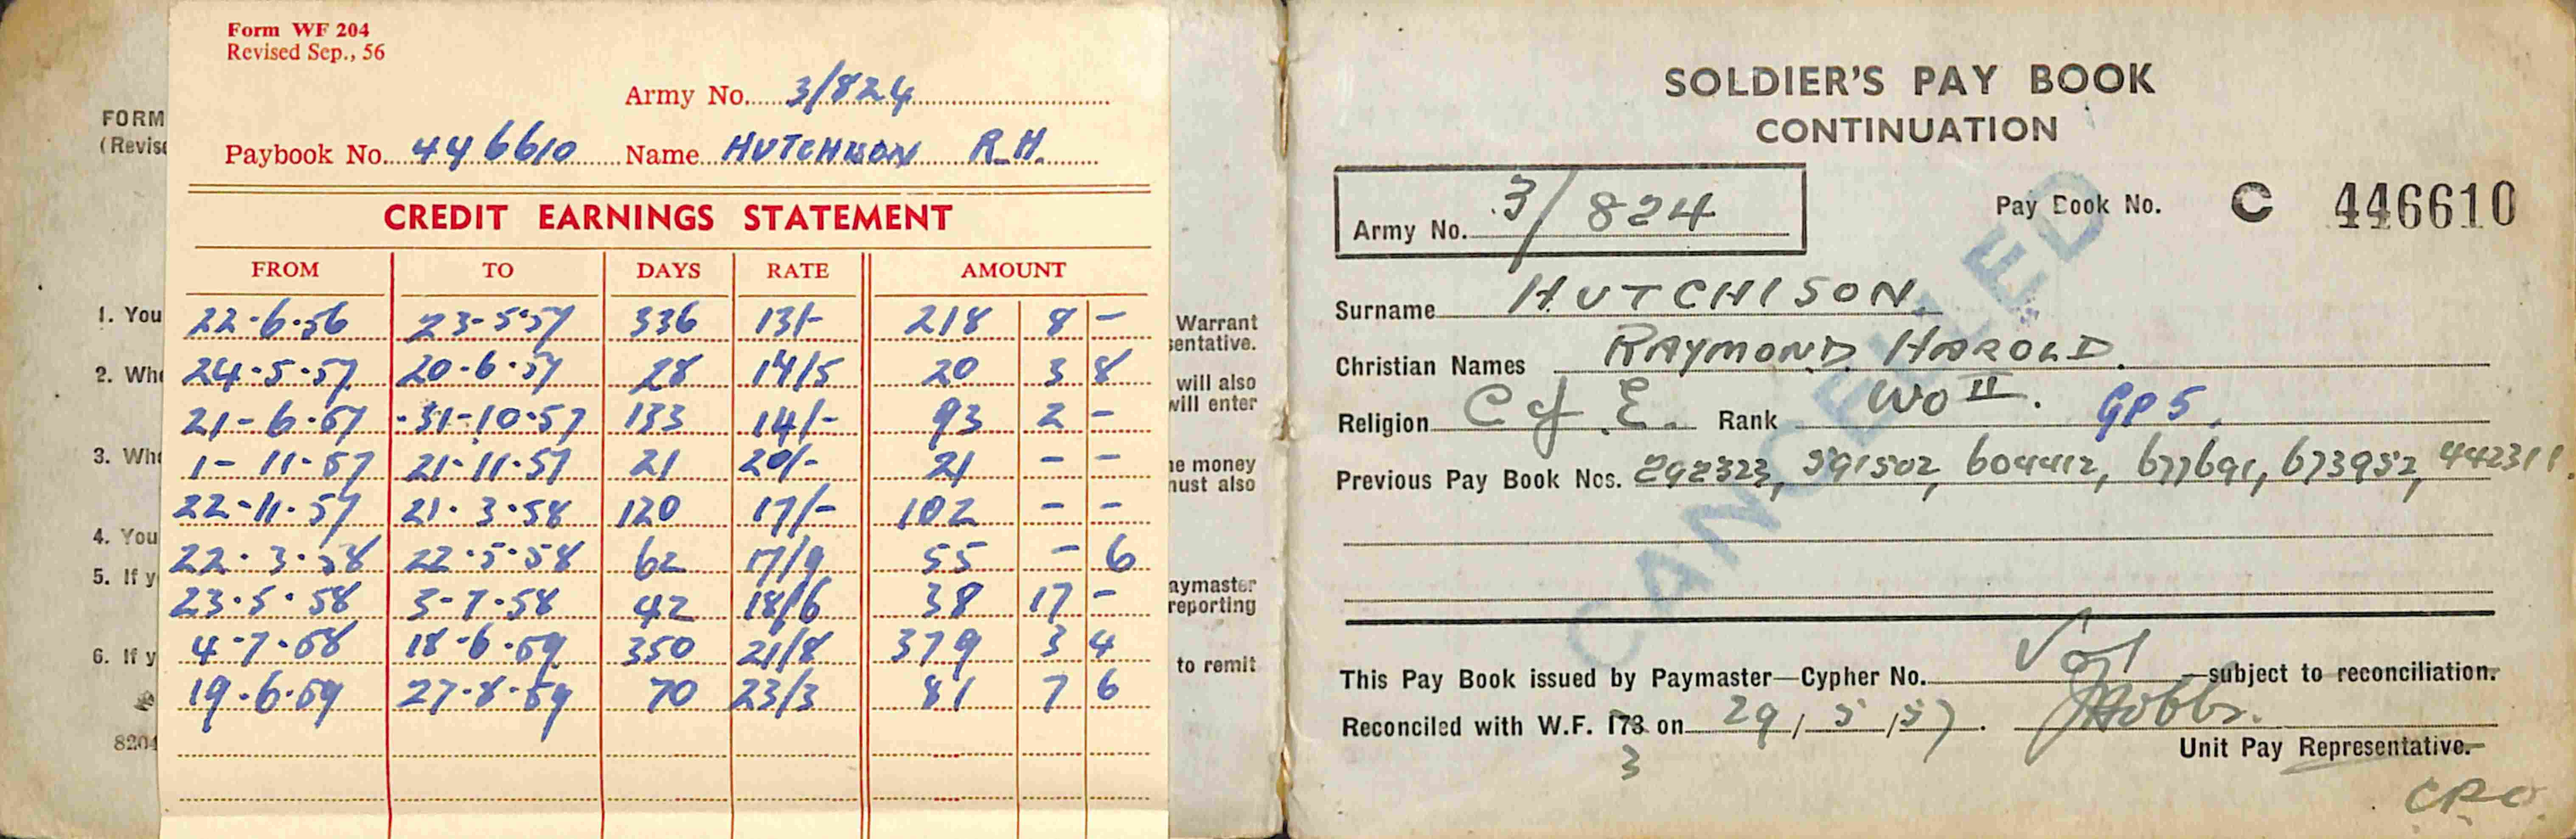 Form WF 204
Revised Sep., 56
Army No. 3/824
Paybook No. 446610 Name HUTCHISON R.H.
CREDIT EARNINGS STATEMENT
FROM TO DAYS RATE AMOUNT
22-6-56 23-5-57 336 13/- 218 8 -
24-5-57 20-6-57 28 14/5 20 3 8
21-6-57 31-10-57 133 14/- 93 2 -
1-11-57 21-11-57 21 20/- 21 - -
22-11-57 21-3-58 120 17/- 102 - -
22-3-58 22-5-58 62 17/9 55 - 6
23-5-58 3-7-58 42 18/6 38 17 -
4-7-58 18-6-59 350 21/8 379 3 4
19-6-59 27-8-59 70 23/3 81 7 6
FORM
(Revise
1. You
2. Whe
3. Whe
4. You
5. If y
6. If y
8204
Warrant
sentative.
will also
will enter
ne money
nust also
aymaster
reporting
to remit
SOLDIER'S PAY BOOK
CONTINUATION
Army No. 3/824
Pay Book No. C 446610
Surname HUTCHISON.
Christian Names RAYMOND HAROLD.
Religion C of E. Rank WO II. GP 5.
Previous Pay Book Nos. 292323, 591502, 604412, 677691, 673952, 442311.
CANCELLED
This Pay Book issued by Paymaster—Cypher No. subject to reconciliation.
Reconciled with W.F. 173 on 29/5/57. JHobbs.
3
Unit Pay Representative.
CPO